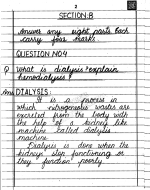 2
SECTION:B
Answer any eight parts. Each
carry five marks
QUESTION NO4
Q What is dialysis? explain
hemodialysis?
Ans DIALYSIS:
It is a process in
which nitrogenous wastes are
excreted from the body with
the help of a kidney like
machine called dialysis
machine.
Dialysis is done when the
kidneys stop functioning or
they function poorly